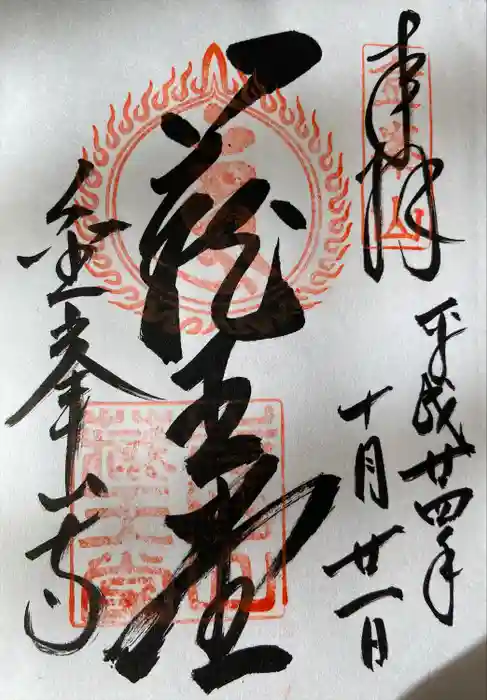 奉拝
金峯山
平成廿四年
十月廿一日
蔵王堂
金峯山寺